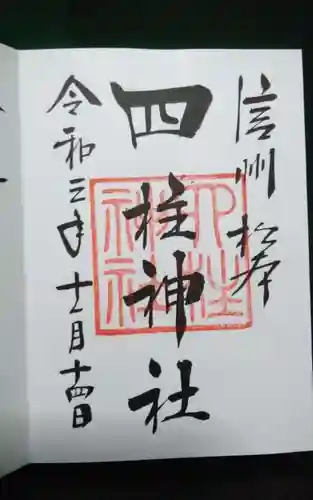 信州 松本
四柱神社
四柱神社
令和三年 十一月十四日